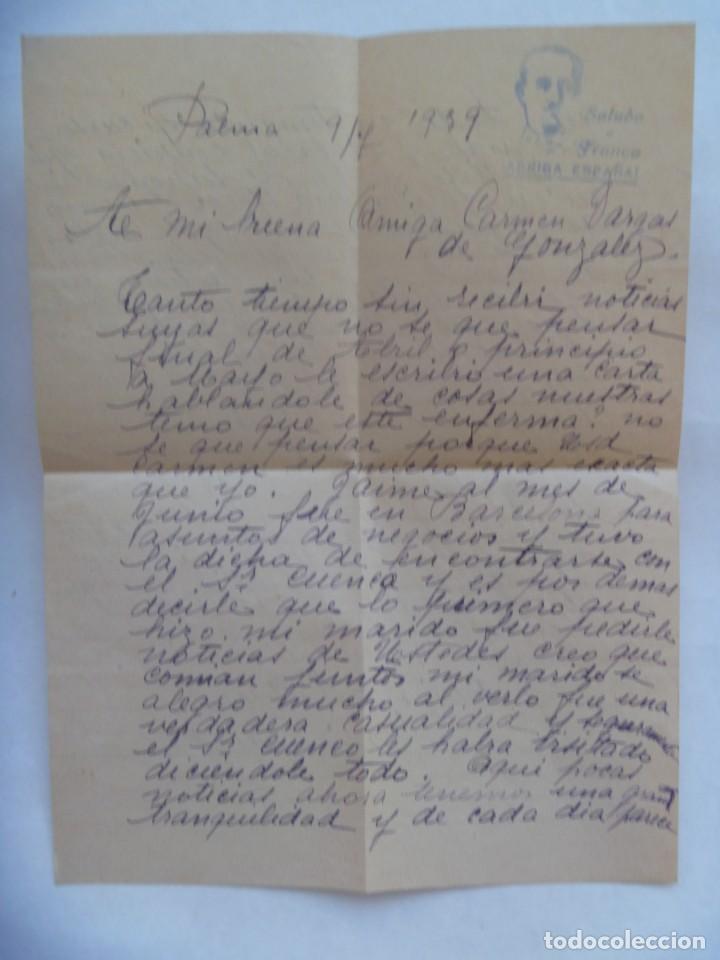 Saludo
a
Franco
¡ARRIBA ESPAÑA!
Palma 9/7 1939
A mi buena Amiga Carmen Vargas
de Gonzalez.
Tanto tiempo sin recibir noticias
suyas que no se que pensar
final de Abril o principio
a Mayo le escribri una carta
hablandole de cosas nuestras
temo que este enferma? no
se que pensar porque Usd
Carmen es mucho mas exacta
que yo. Jaime al mes de
Junio fue en Barcelona para
asuntos de negocios y tuvo
la dicha de encontrarse con
el Sr Cuenca y es por demas
decirle que lo primero que
hizo mi marido fue pedirle
noticias de Ustedes creo que
comian juntos mi marido se
alegro mucho al verlo fue una
verdadera casualidad y seguramente
el Sr Cuenca les habra visitado
diciendole todo. Aqui pocas
noticias ahora tenemos una gran
tranquilidad y de cada dia parece
todocoleccion.net